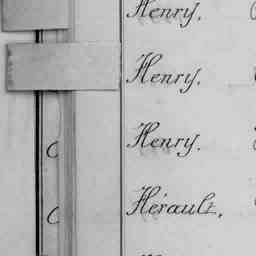 Henry.
Henry.
Henry.
Herault.